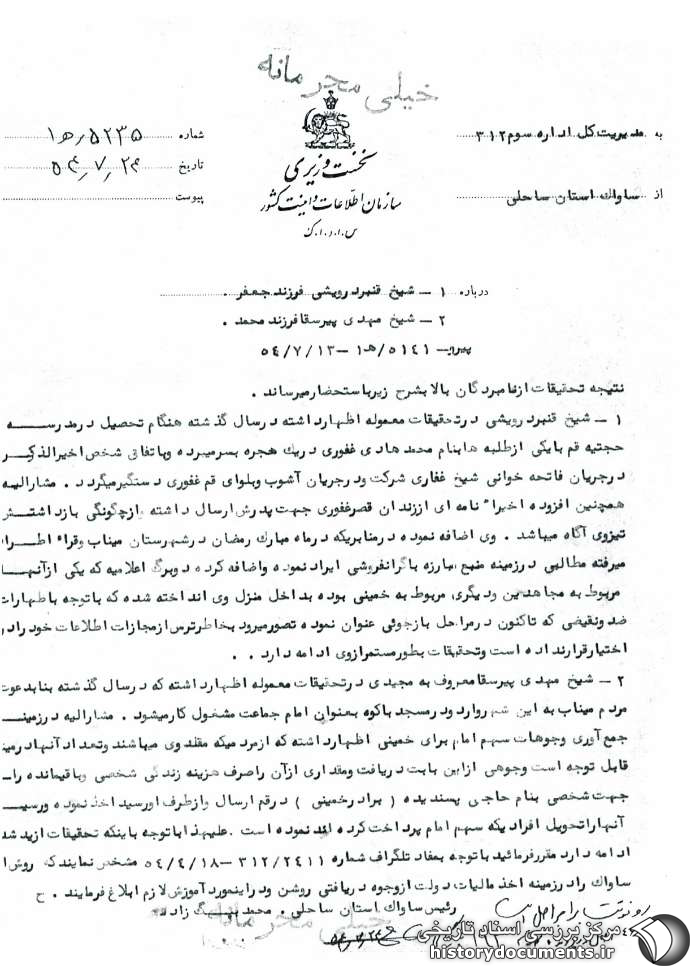 خیلی محرمانه
به مدیریت کل اداره سوم ۳۱۲
از ساواک استان ساحلی
نخست وزیری
سازمان اطلاعات و امنیت کشور
س.ا.و.ا.ک
شماره ۵۲۳۵/ه۱
تاریخ ۵۴/۷/۲۴
پیوست
درباره ۱ – شیخ قنبر درویشی فرزند جعفر .
۲ – شیخ مهدی پیرسقا فرزند محمد .
پیرو ۵۱۴۱/ه۱ –۵۴/۷/۱۳
نتیجه تحقیقات از نامبردگان بالا بشرح زیر باستحضار میرساند .
۱ – شیخ قنبر درویشی در تحقیقات معموله اظهار داشته در سال گذشته هنگام تحصیل در مدرسه
حجتیه قم با یکی از طلبه ها بنام محمد هادی غفوری در یک حجره بسر میبرده و با تفاق شخص اخیر الذکر
در جریان فاتحه خوانی شیخ غفاری شرکت و در جریان آشوب و بلوای قم غفوری دستگیر میگردد . مشارالیه
همچنین افزوده اخیرا" نامه ای از زندان قصر غفوری جهت پدرش ارسال داشته و از چگونگی بازداشتش
نیز وی آگاه میباشد . وی اضافه نموده در منابریکه در ماه مبارک رمضان در شهرستان میناب و قراء اطراف
میرفته مطالبی در زمینه منبع مبارزه با گرانفروشی ایراد نموده و اضافه کرده دو برگ اعلامیه که یکی از آنها
مربوط به مجاهدین و دیگری مربوط به خمینی بوده بداخل منزل وی انداخته شده که با توجه باظهارات
ضد و نقیضی که تاکنون در مراحل بازجوئی عنوان نموده تصور میرود بخاطر ترس از مجازات اطلاعات خود را در
اختیار قرار نداده است و تحقیقات بطور مستمر از وی ادامه دارد . .
۲ – شیخ مهدی پیرسقا معروف به مجیدی در تحقیقات معموله اظهار داشته که در سال گذشته بنا بدعوت
مردم میناب به این شهر وارد و در مسجد باکوه بعنوان امام جماعت مشغول کار میشود . مشارالیه در زمینه
جمع آوری وجوهات سهم امام برای خمینی اظهار داشته که از مردمیکه مقلد وی میباشند و تعداد آنها در میناب
قابل توجه است وجوهی از این بابت دریافت و مقداری از آن را صرف هزینه زندگی شخصی و باقیمانده را
جهت شخصی بنام حاجی پسندیده ( برادر خمینی ) در قم ارسال و از طرف او رسید اخذ نموده و رسید
آنها را تحویل افرادیکه سهم امام پرداخت کرده اند نموده است . علیهذا با توجه باینکه تحقیقات از یدشده
ادامه دارد مقرر فرمائید با توجه بمفاد تلگراف شماره ۳۱۲/۲۴۱۱ –۵۴/۴/۱۸ مشخص نمایند که روش
ساواک را در زمینه اخذ مالیات دولت از وجوه دریافتی روشن و در اینمورد آموزش لازم ابلاغ فرمایند . ح
رئیس ساواک استان ساحلی . محمد
خیلی محرمانه
مرکز بررسی اسناد تاریخی
historydocuments.ir